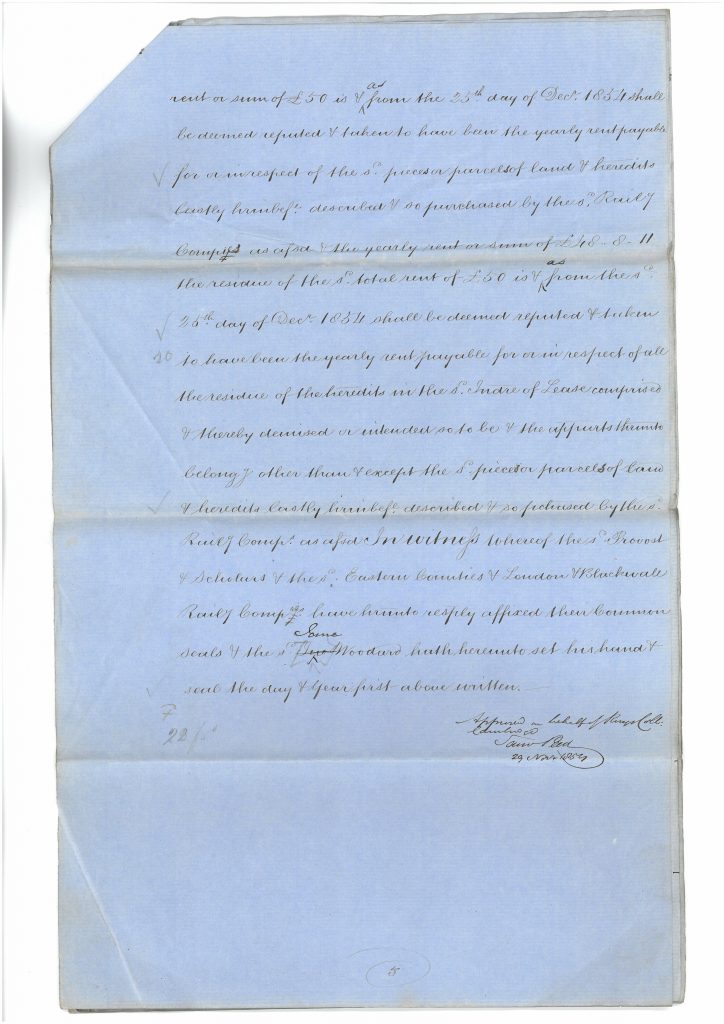 rent or sum of £50 is & as from the 25th day of Decr. 1854 shall
be deemed reputed & taken to have been the yearly rent payable
for or in respect of the sd. pieces or parcels of land & heredits
lastly hrinbefe. described & so purchased by the sd. Raily
Compys as afsd & the yearly rent or sum of £48-8-11
the residue of the sd. total rent of £50 is & as from the sd.
25th day of Decr. 1854 shall be deemed reputed & taken
to have been the yearly rent payable for or in respect of all
the residue of the heredits in the sd. Indre of Lease comprised
& thereby demised or intended so to be & the appurts thrunto
belongg other than & except the sd. pieces or parcels of land
& heredits lastly hrinbefe. described & so pchased by the sd.
Raily Compy. as afsd In witness whereof the sd. Provost
& Scholars & the sd. Eastern Counties & London & Blackwall
Raily Compys have hrunto resply affixed their Common
seals & the sd. Woodard hath hereunto set his hand &
seal the day & year first above written.
Approved on behalf of Kings Coll.
Cambridge
29 Novr. 1854
5